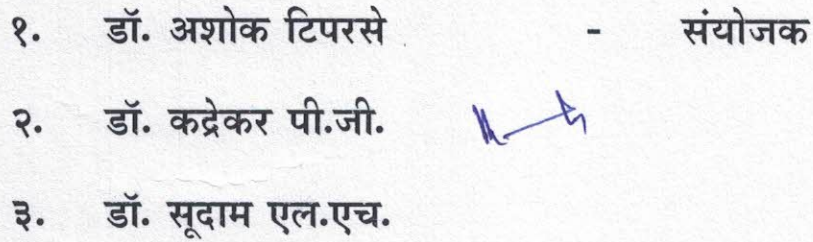 १. डॉ. अशोक टिपरसे - संयोजक
२. डॉ. कद्रेकर पी.जी.
३. डॉ. सूदाम एल.एच.